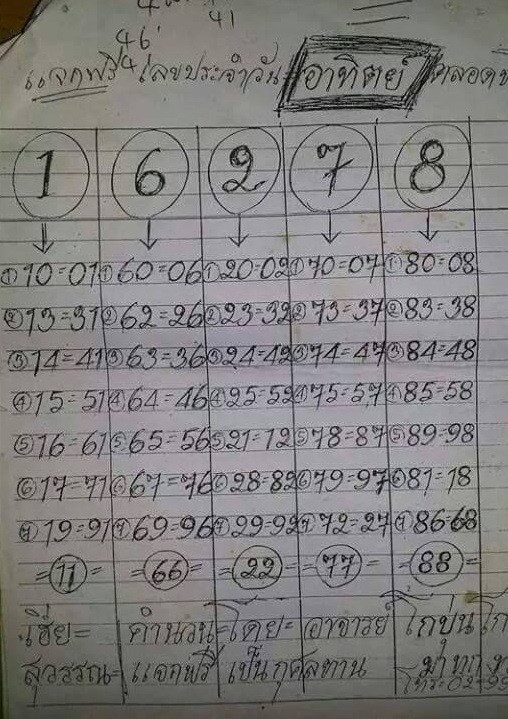 41
46
แจกฟรี 4 เลขประจำวัน อาทิตย์ ตลอด
1 6 2 7 8
①10=01 ①60=06 ①20=02 ①70=07 ①80=08
②13=31 ②62=26 ②23=32 ②73=37 ②83=38
③14=41 ③63=36 ③24=42 ③74=47 ③84=48
④15=51 ④64=46 ④25=52 ④75=57 ④85=58
⑤16=61 ⑤65=56 ⑤21=12 ⑤78=87 ⑤89=98
⑥17=71 ⑥67=76 ⑥28=82 ⑥79=97 ⑥81=18
⑦19=91 ⑦69=96 ⑦29=92 ⑦72=27 ⑦86=68
=11= =66= =22= =77= =88=
คำนวน=โดย= อาจารย์ โกปุ่น
สุวรรณ= แจกฟรี เป็น กุศลทาน